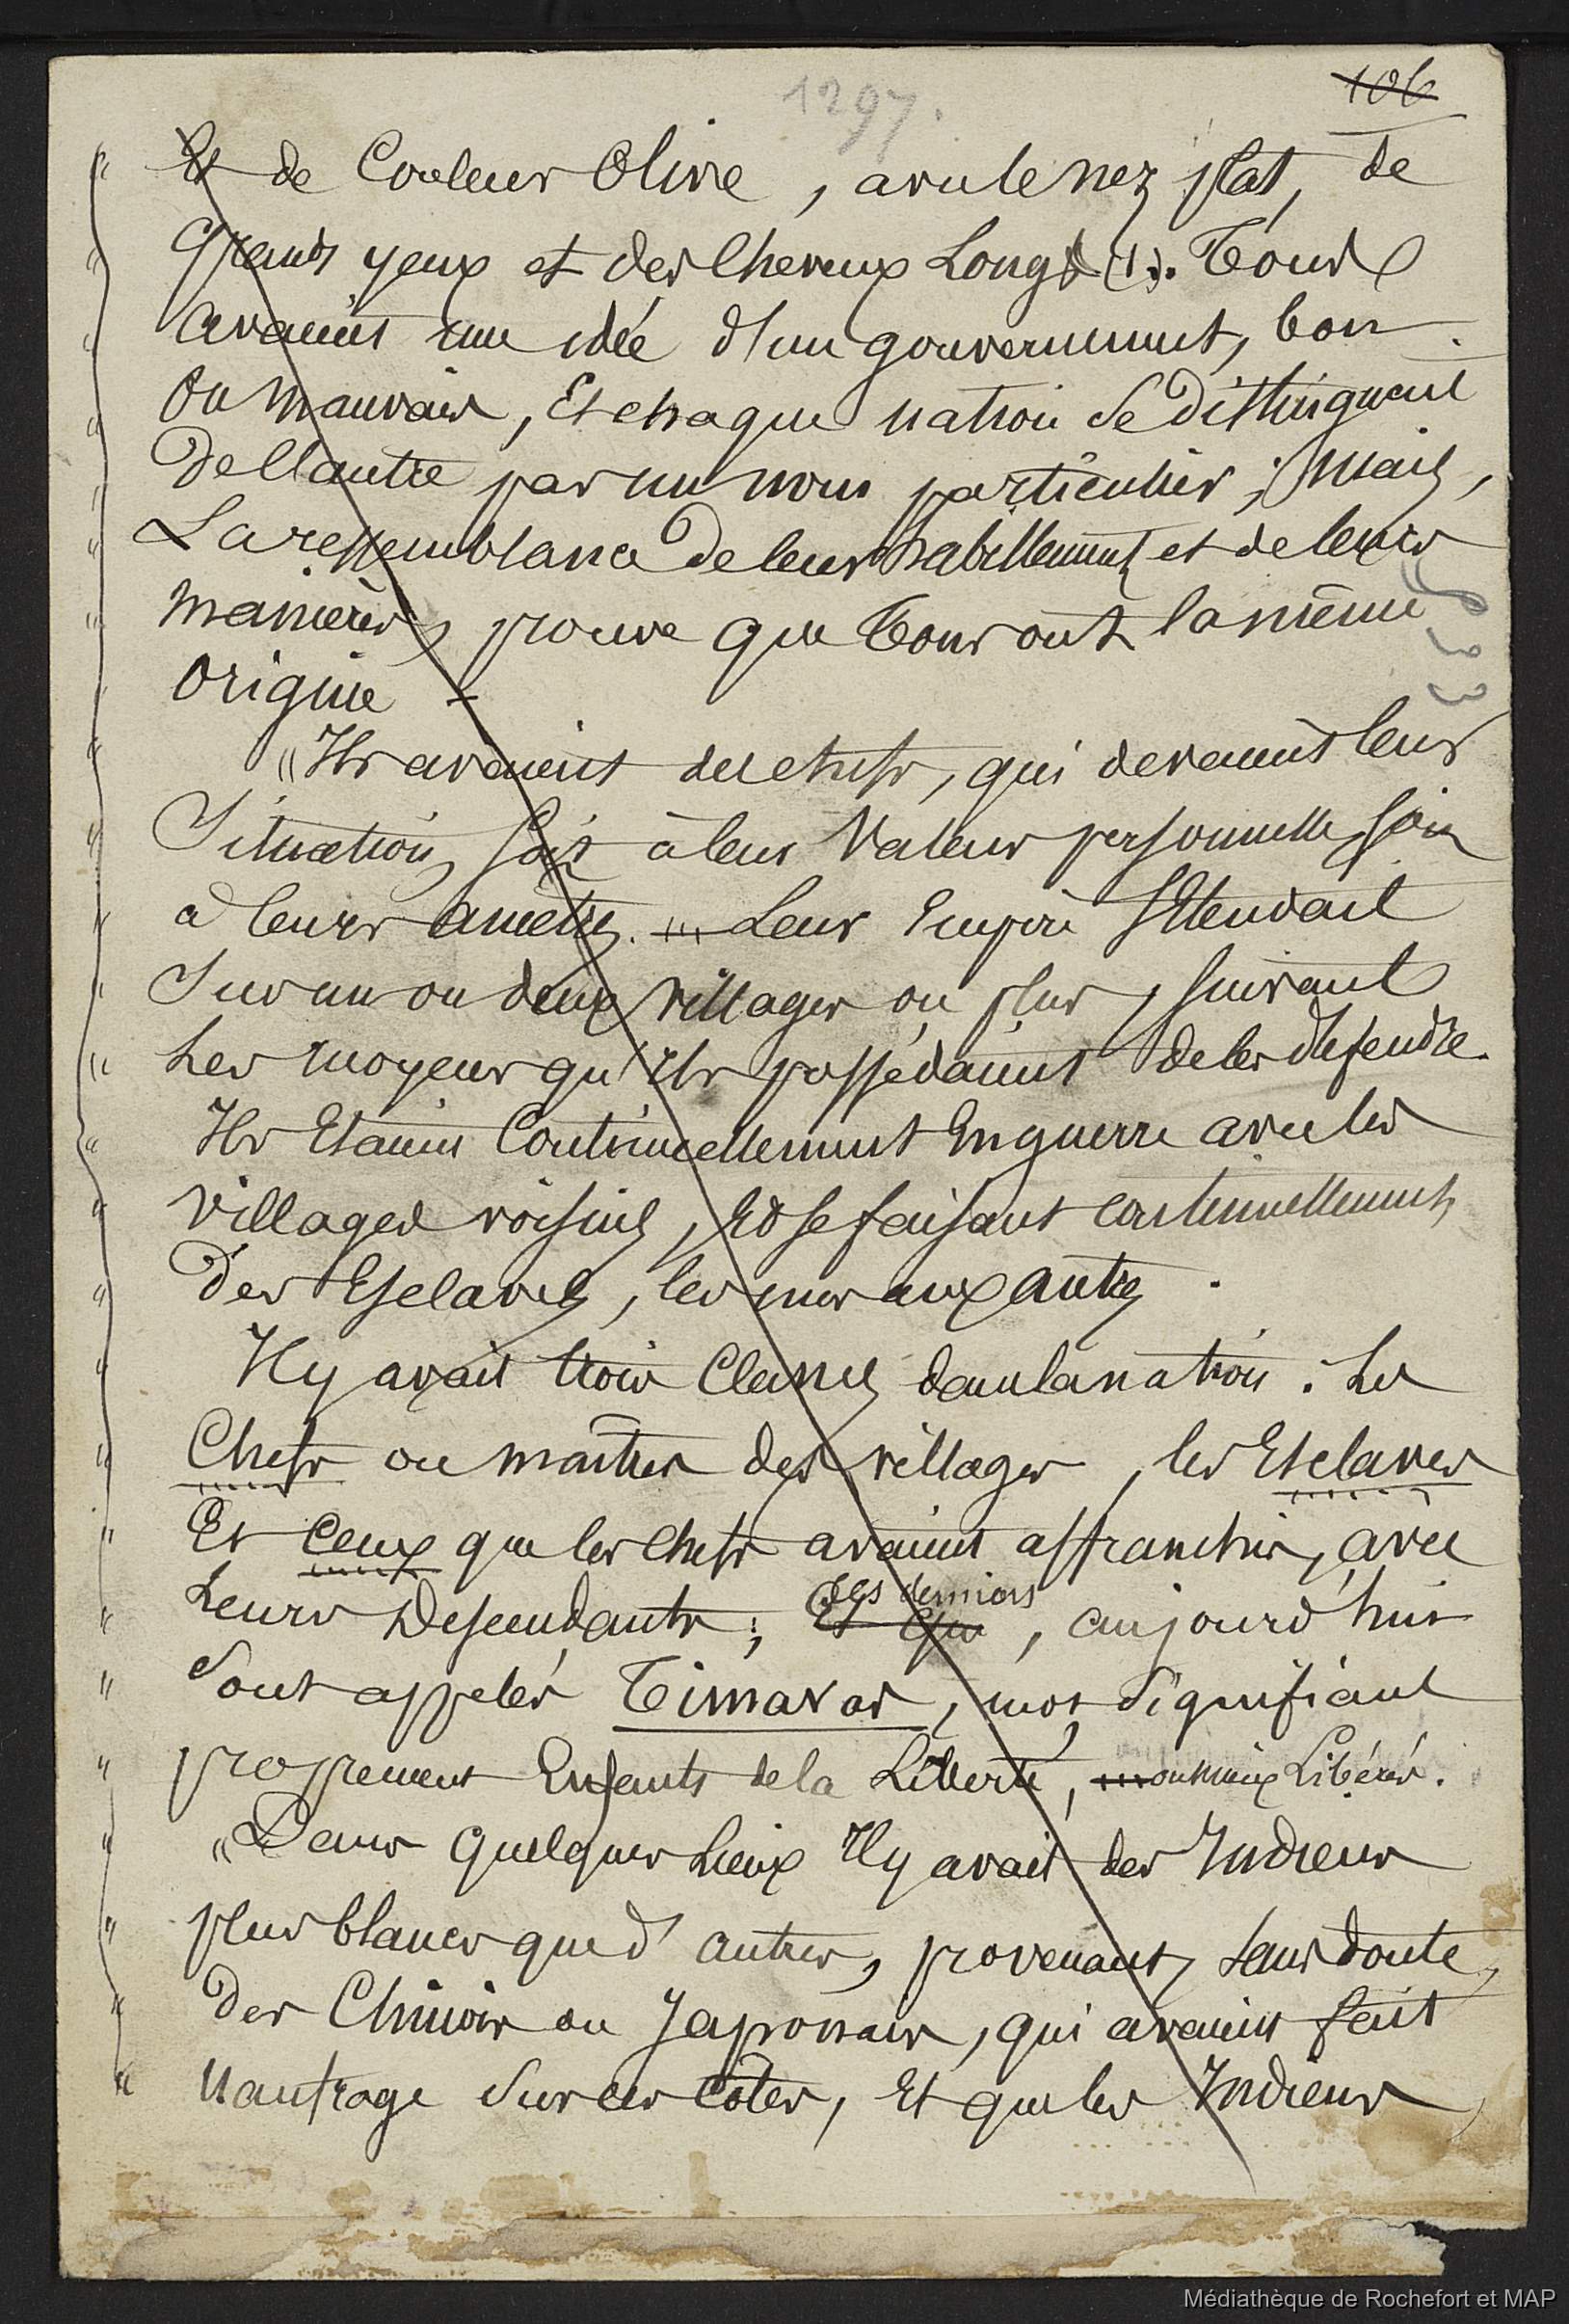 1297.
106
Et de Couleur Olive, avec le nez plat, de
Grands yeux et des Cheveux Longs (1). Tous
avaient une idée d'un gouvernement, bon
ou mauvais, Et chaque nation se distinguait
De l'autre par un nom particulier; Mais,
La ressemblance de leur habillement et de leurs
manières, prouve que tous ont la même
Origine -
"Ils avaient des chefs, qui devaient leur
Situation, soit à leur Valeur personnelle, soit
à leurs ancêtres. Leur Empire s'Etendait
Sur un ou deux villages ou plus, suivant
Les moyens qu'Ils possédaient de les défendre.
Ils Etaient Continuellement En guerre avec les
villages voisins, Et se faisant continuellement
Des Esclaves, les uns aux autres.
Il y avait trois Classes dans la nation. Les
Chefs ou maîtres des villages, les Esclaves
Et ceux que les Chefs avaient affranchis, avec
Leurs Descendants; Et Ces derniers, aujourd'hui
Sont appelés Timavas, mot signifiant
proprement Enfants de la Liberté, ou mieux Libérés.
"Dans Quelques Lieux Il y avait des Indiens
plus blancs que d'autres, provenant, sans doute,
Des Chinois ou Japonais, qui avaient fait
Naufrage Sur ces Côtes, Et que les Indiens
Médiathèque de Rochefort et MAP